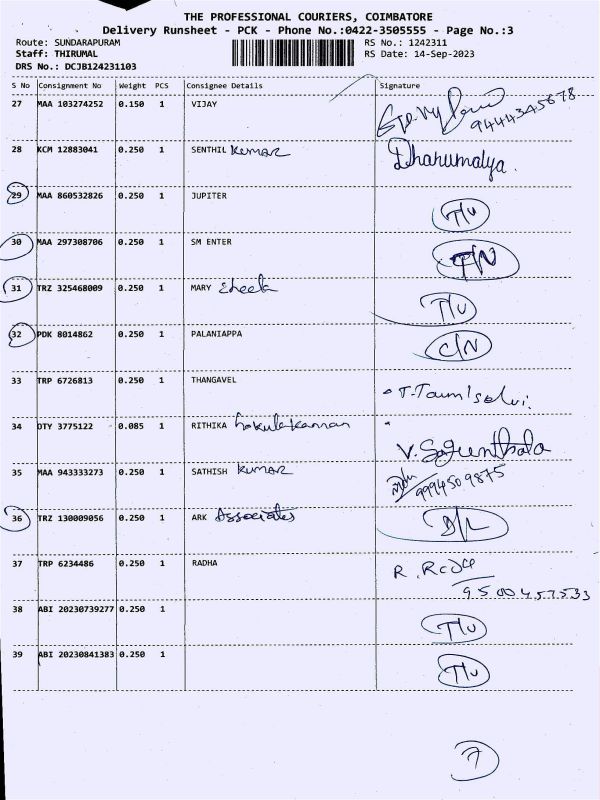 THE PROFESSIONAL COURIERS, COIMBATORE
Delivery Runsheet - PCK - Phone No.:0422-3505555 - Page No.:3
Route: SUNDARAPURAM RS No.: 1242311
Staff: THIRUMAL RS Date: 14-Sep-2023
DRS No.: DCJB124231103
S No Consignment No Weight PCS Consignee Details Signature
27 MAA 103274252 0.150 1 VIJAY 9444345678
28 KCM 12883041 0.250 1 SENTHIL Kumar Dhanumalya.
29 MAA 860532826 0.250 1 JUPITER T/U
30 MAA 297308706 0.250 1 SM ENTER
31 TRZ 325468009 0.250 1 MARY Sheela T/U
32 PDK 8014862 0.250 1 PALANIAPPA C/N
33 TRP 6726813 0.250 1 THANGAVEL T. Tamilselvi.
34 OTY 3775122 0.085 1 RITHIKA V. Sagunthala
35 MAA 943333273 0.250 1 SATHISH Kumar 9994509875
36 TRZ 130009056 0.250 1 ARK Associates D/L
37 TRP 6234486 0.250 1 RADHA R. 9500457533
38 ABI 20230739277 0.250 1 T/U
39 ABI 20230841383 0.250 1 T/U
7